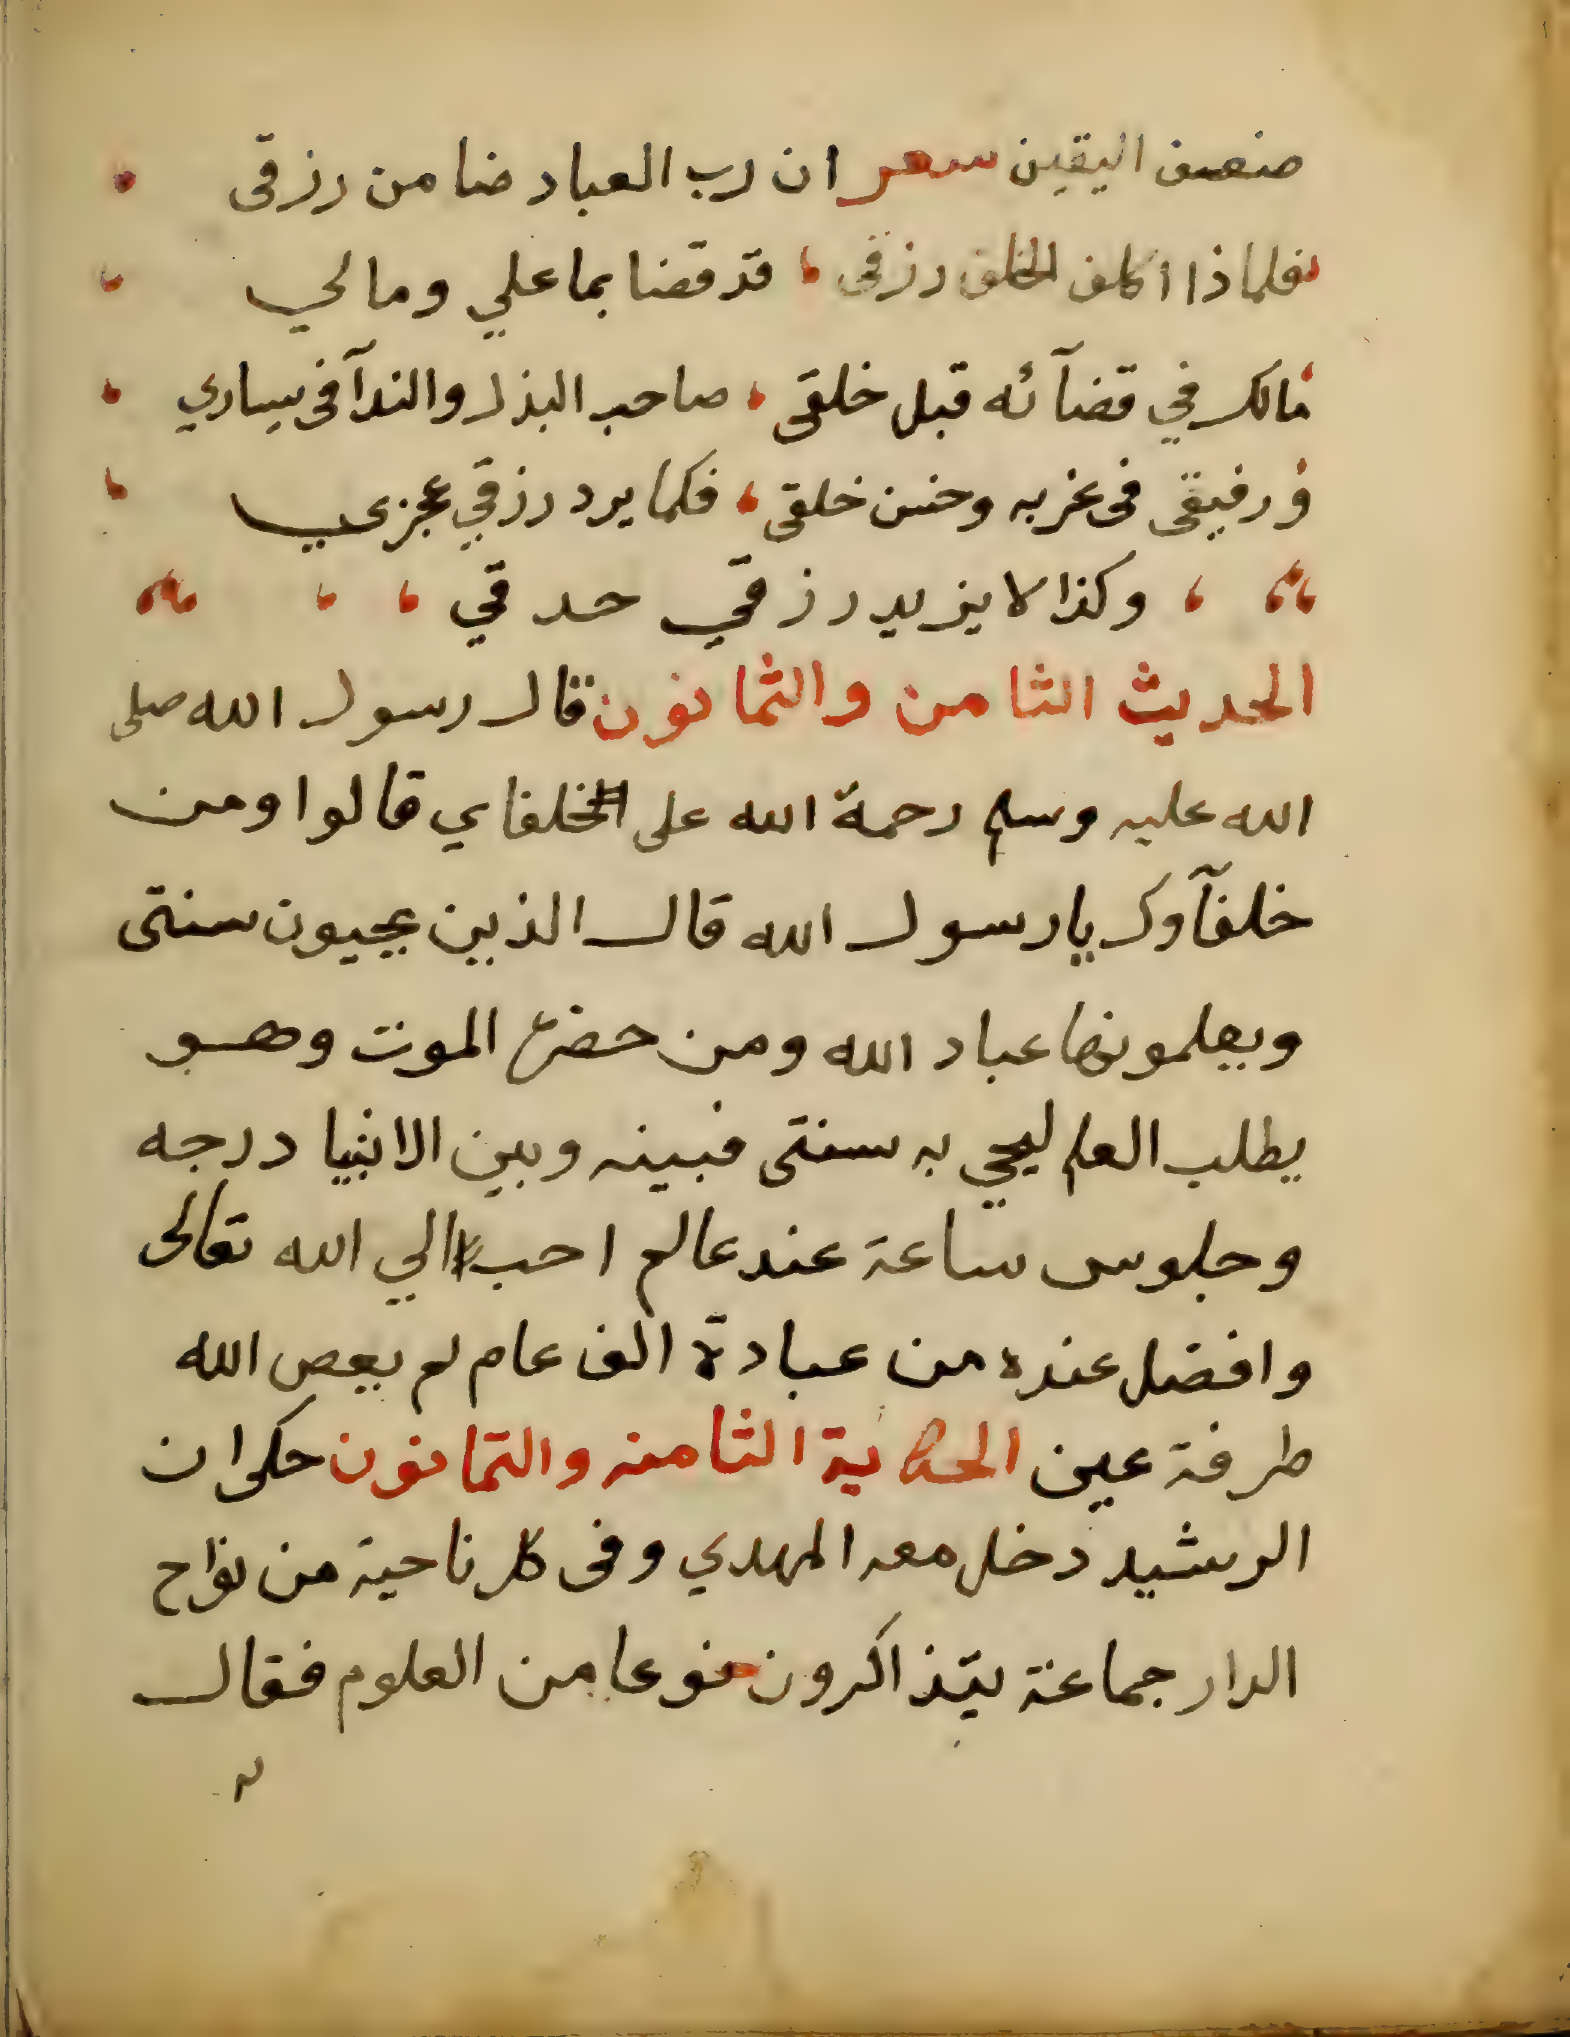 ضعف اليقين شعر ان رب العباد ضامن رزقى
فلماذا اكلف الخلق رزقى قد قضا بما علي ومالي
مالك في قضآئه قبل خلقى صاحب البذل والندآ فى يساري
ورفيقى فى غربه وحسن خلقى فكما يرد رزقي عجزي
وكذا لا يزيد رزقي حدقي
الحديث الثامن والثمانون قال رسول الله صلى
الله عليه وسلم رحمة الله على خلفاي قالوا ومن
خلفآوك يا رسول الله قال الذين يحيون سنتى
ويعلمونها عباد الله ومن حضره الموت وهو
يطلب العلم ليحي به سنتى فبينه وبين الانبيا درجه
وجلوس ساعة عند عالم احب الي الله تعالى
وافضل عنده من عبادة الف عام لم يعص الله
طرفة عين الحكاية الثامنه والثمانون حكى ان
الرشيد دخل معه المهدي وفى كل ناحية من نواح
الدار جماعة يتذاكرون نوعا من العلوم فقال